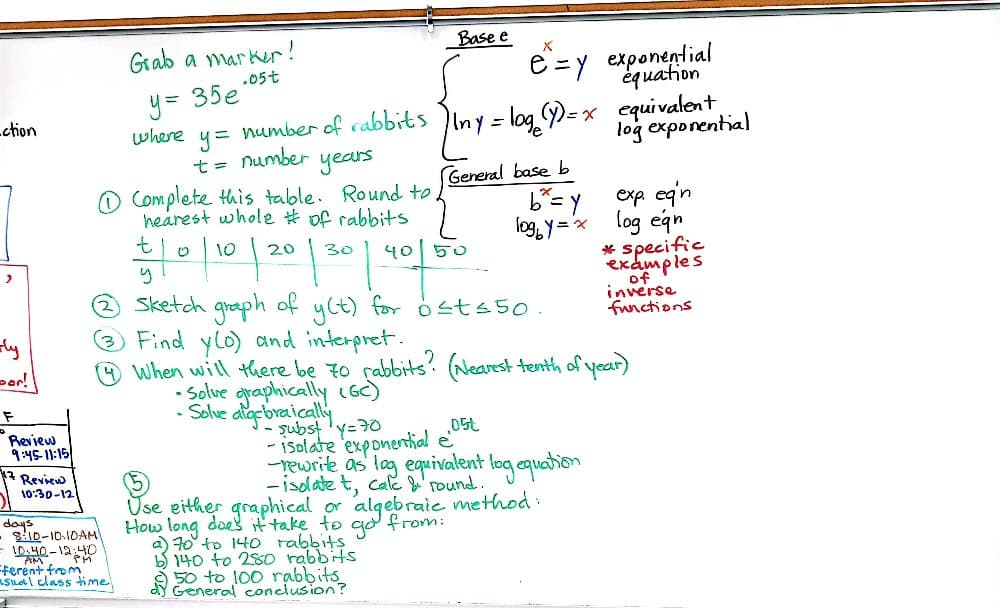 Grab a marker!
y = 35e^.05t
where y = number of rabbits
t = number years
① Complete this table. Round to
nearest whole # of rabbits
t | 0 | 10 | 20 | 30 | 40 | 50
y
② Sketch graph of y(t) for 0≤t≤50.
③ Find y(0) and interpret.
④ When will there be 70 rabbits? (Nearest tenth of year)
• Solve graphically (GC)
• Solve algebraically
- subst y=70
- isolate exponential e^.05t
- rewrite as log equivalent log equation
- isolate t, calc & round.
⑤
Use either graphical or algebraic method:
How long does it take to go from:
a) 70 to 140 rabbits
b) 140 to 280 rabbits
c) 50 to 100 rabbits
d) General conclusion?
Base e
e^x = y exponential
equation
ln y = log_e(y) = x equivalent
log exponential
General base b
b^x = y exp eq'n
log_b y = x log eq'n
* specific
examples
of
inverse
functions
ction
,
rly
oor!
F
Review
9:45-11:15
12 Review
10:30-12
days
8:10-10:10AM
10:40-12:40
AM PM
fferent from
usual class time